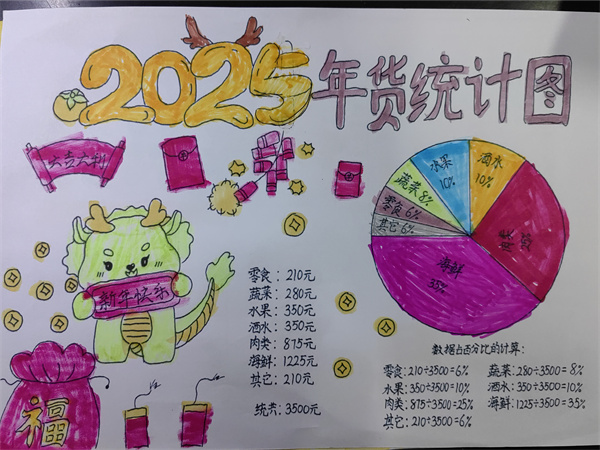 2025年货统计图
大吉大利
水果
10%
酒水
10%
蔬菜 8%
零食 6%
其它 6%
肉类
海鲜
35%
新年快乐
福
零食：210元
蔬菜：280元
水果：350元
酒水：350元
肉类：875元
海鲜：1225元
其它：210元
统共：3500元
数据占百分比的计算：
零食：210÷3500=6%
蔬菜：280÷3500=8%
水果：350÷3500=10%
酒水：350÷3500=10%
肉类：875÷3500=25%
海鲜：1225÷3500=35%
其它：210÷3500=6%